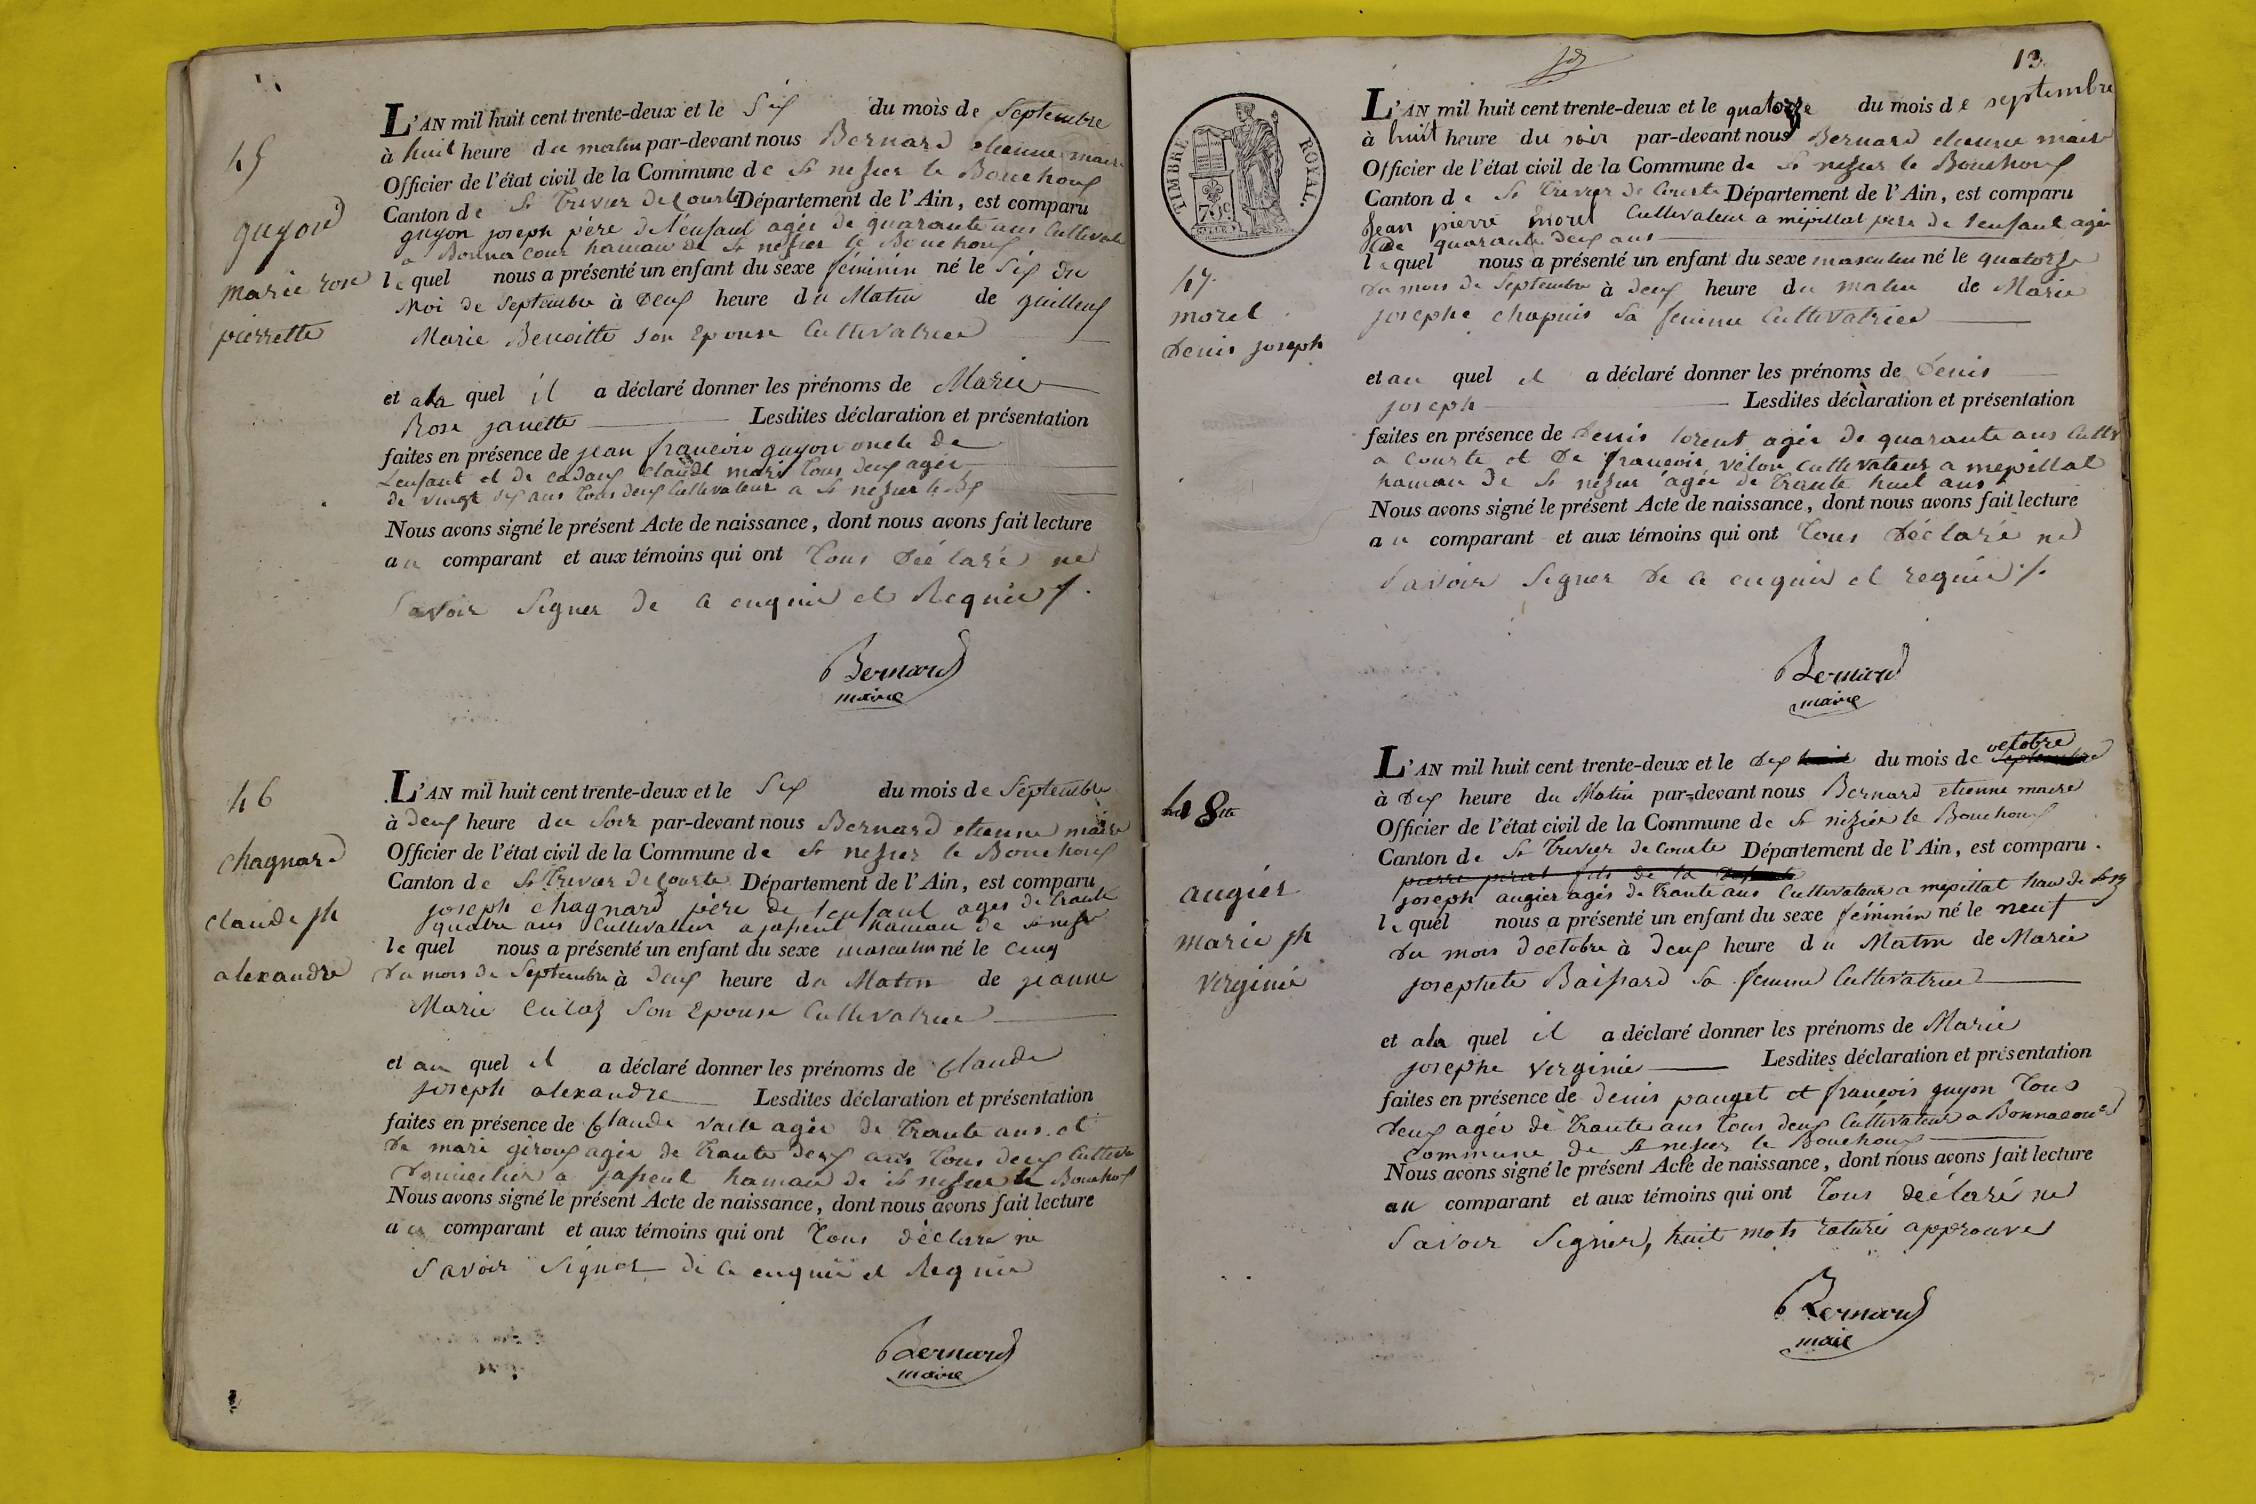 45
guyon
marie rose
pierrette
L'AN mil huit cent trente-deux et le Six du mois de Septembre
à huit heure du matin par-devant nous Bernard etienne maire
Officier de l'état civil de la Commune de St nesier le Bouchoux
Canton de St Trivier de Courte Département de l'Ain, est comparu
guyon joseph père de l'enfant agée de quarante ans Cultivate
a Bonna cour hamau de St nesier le Bouchoux
le quel nous a présenté un enfant du sexe féminin né le Six du
Moi de Septembre à Deux heure du Matin de guilleux
Marie Benoitte son Epouse Cultivatrice
et a la quel il a déclaré donner les prénoms de Marie
Rose janette Lesdites déclaration et présentation
faites en présence de jean francois guyon oncle de
L'enfant et de cadoux Claude marie Tous deux agée
de vingt six ans Tous deux Cultivateur a St nesier le Bx
Nous avons signé le présent Acte de naissance, dont nous avons fait lecture
au comparant et aux témoins qui ont Tous Déclaré ne
Savoir Signer de ce enquie et Requie
Bernard
maire
46
chagnard
claude jh
alexandre
L'AN mil huit cent trente-deux et le Six du mois de Septembre
à deux heure du Soir par-devant nous Bernard etienne maire
Officier de l'état civil de la Commune de St nesier le Bouchoux
Canton de St Trivier de Courte Département de l'Ain, est comparu
joseph chagnard père de l'enfant agés de trante
quatre ans Cultivateur a japent hamau de St nesr
le quel nous a présenté un enfant du sexe masculin né le cinq
du mois de Septembre à Deux heure du Matin de jeanne
Marie Culaz Son Epouse Cultivatrice
et au quel il a déclaré donner les prénoms de Claude
joseph alexandre Lesdites déclaration et présentation
faites en présence de Claude agée de Trante ans et
De mari giroux agée de Trante deux ans Tous deux Cultiva
Domicilié a japent hamau de St nesier le Bouchox
Nous avons signé le présent Acte de naissance, dont nous avons fait lecture
au comparant et aux témoins qui ont Tous déclaré ne
Savoir Signer de ce enquie et Requie
Bernard
maire
13
TIMBRE ROYAL.
75c
47
morel
Denis joseph
L'AN mil huit cent trente-deux et le quatorze du mois de septembre
à huit heure du soir par-devant nous Bernard etienne maire
Officier de l'état civil de la Commune de St nesier le Bouchoux
Canton de St Trivier de Courte Département de l'Ain, est comparu
Jean pierre morel Cultivateur a mépillat père de l'enfant agée
de quarante deux ans
le quel nous a présenté un enfant du sexe masculin né le quatorze
Du mois de Septembre à deux heure du matin de Marie
josephe chapuis Sa femme Cultivatrice
et au quel il a déclaré donner les prénoms de Denis
joseph Lesdites déclaration et présentation
faites en présence de Denis lorent agée de quarante ans Cultiv
a Courte et De francois vélon cultivateur a mepillat
hamau de St nesier agée de Trante huit ans
Nous avons signé le présent Acte de naissance, dont nous avons fait lecture
au comparant et aux témoins qui ont Tous Déclaré ne
Savoir Signer de ce enquie et requie
Bernard
maire
48
augier
marie jh
virginie
L'AN mil huit cent trente-deux et le Dix huit du mois de octobre Septembre
à Dix heure du Matin par-devant nous Bernard etienne maire
Officier de l'état civil de la Commune de St nizier le Bouchoux
Canton de St Trivier de Courte Département de l'Ain, est comparu
joseph augier agés de Trante ans Cultivateur a mepillat hau de St nz
le quel nous a présenté un enfant du sexe féminin né le neuf
Du mois d'octobre à deux heure du Matin de Marie
josephete Baissard Sa femme Cultivatrice
et a la quel il a déclaré donner les prénoms de Marie
josephe verginie Lesdites déclaration et présentation
faites en présence de denis pauget et francois guyon Tous
Deux agée de Trante ans Tous deux Cultivateur a Bonnacour
Commune de St nesier le Bouchoux
Nous avons signé le présent Acte de naissance, dont nous avons fait lecture
au comparant et aux témoins qui ont Tous déclaré ne
Savoir Signer, huit mots raturé approuvé
Bernard
maire